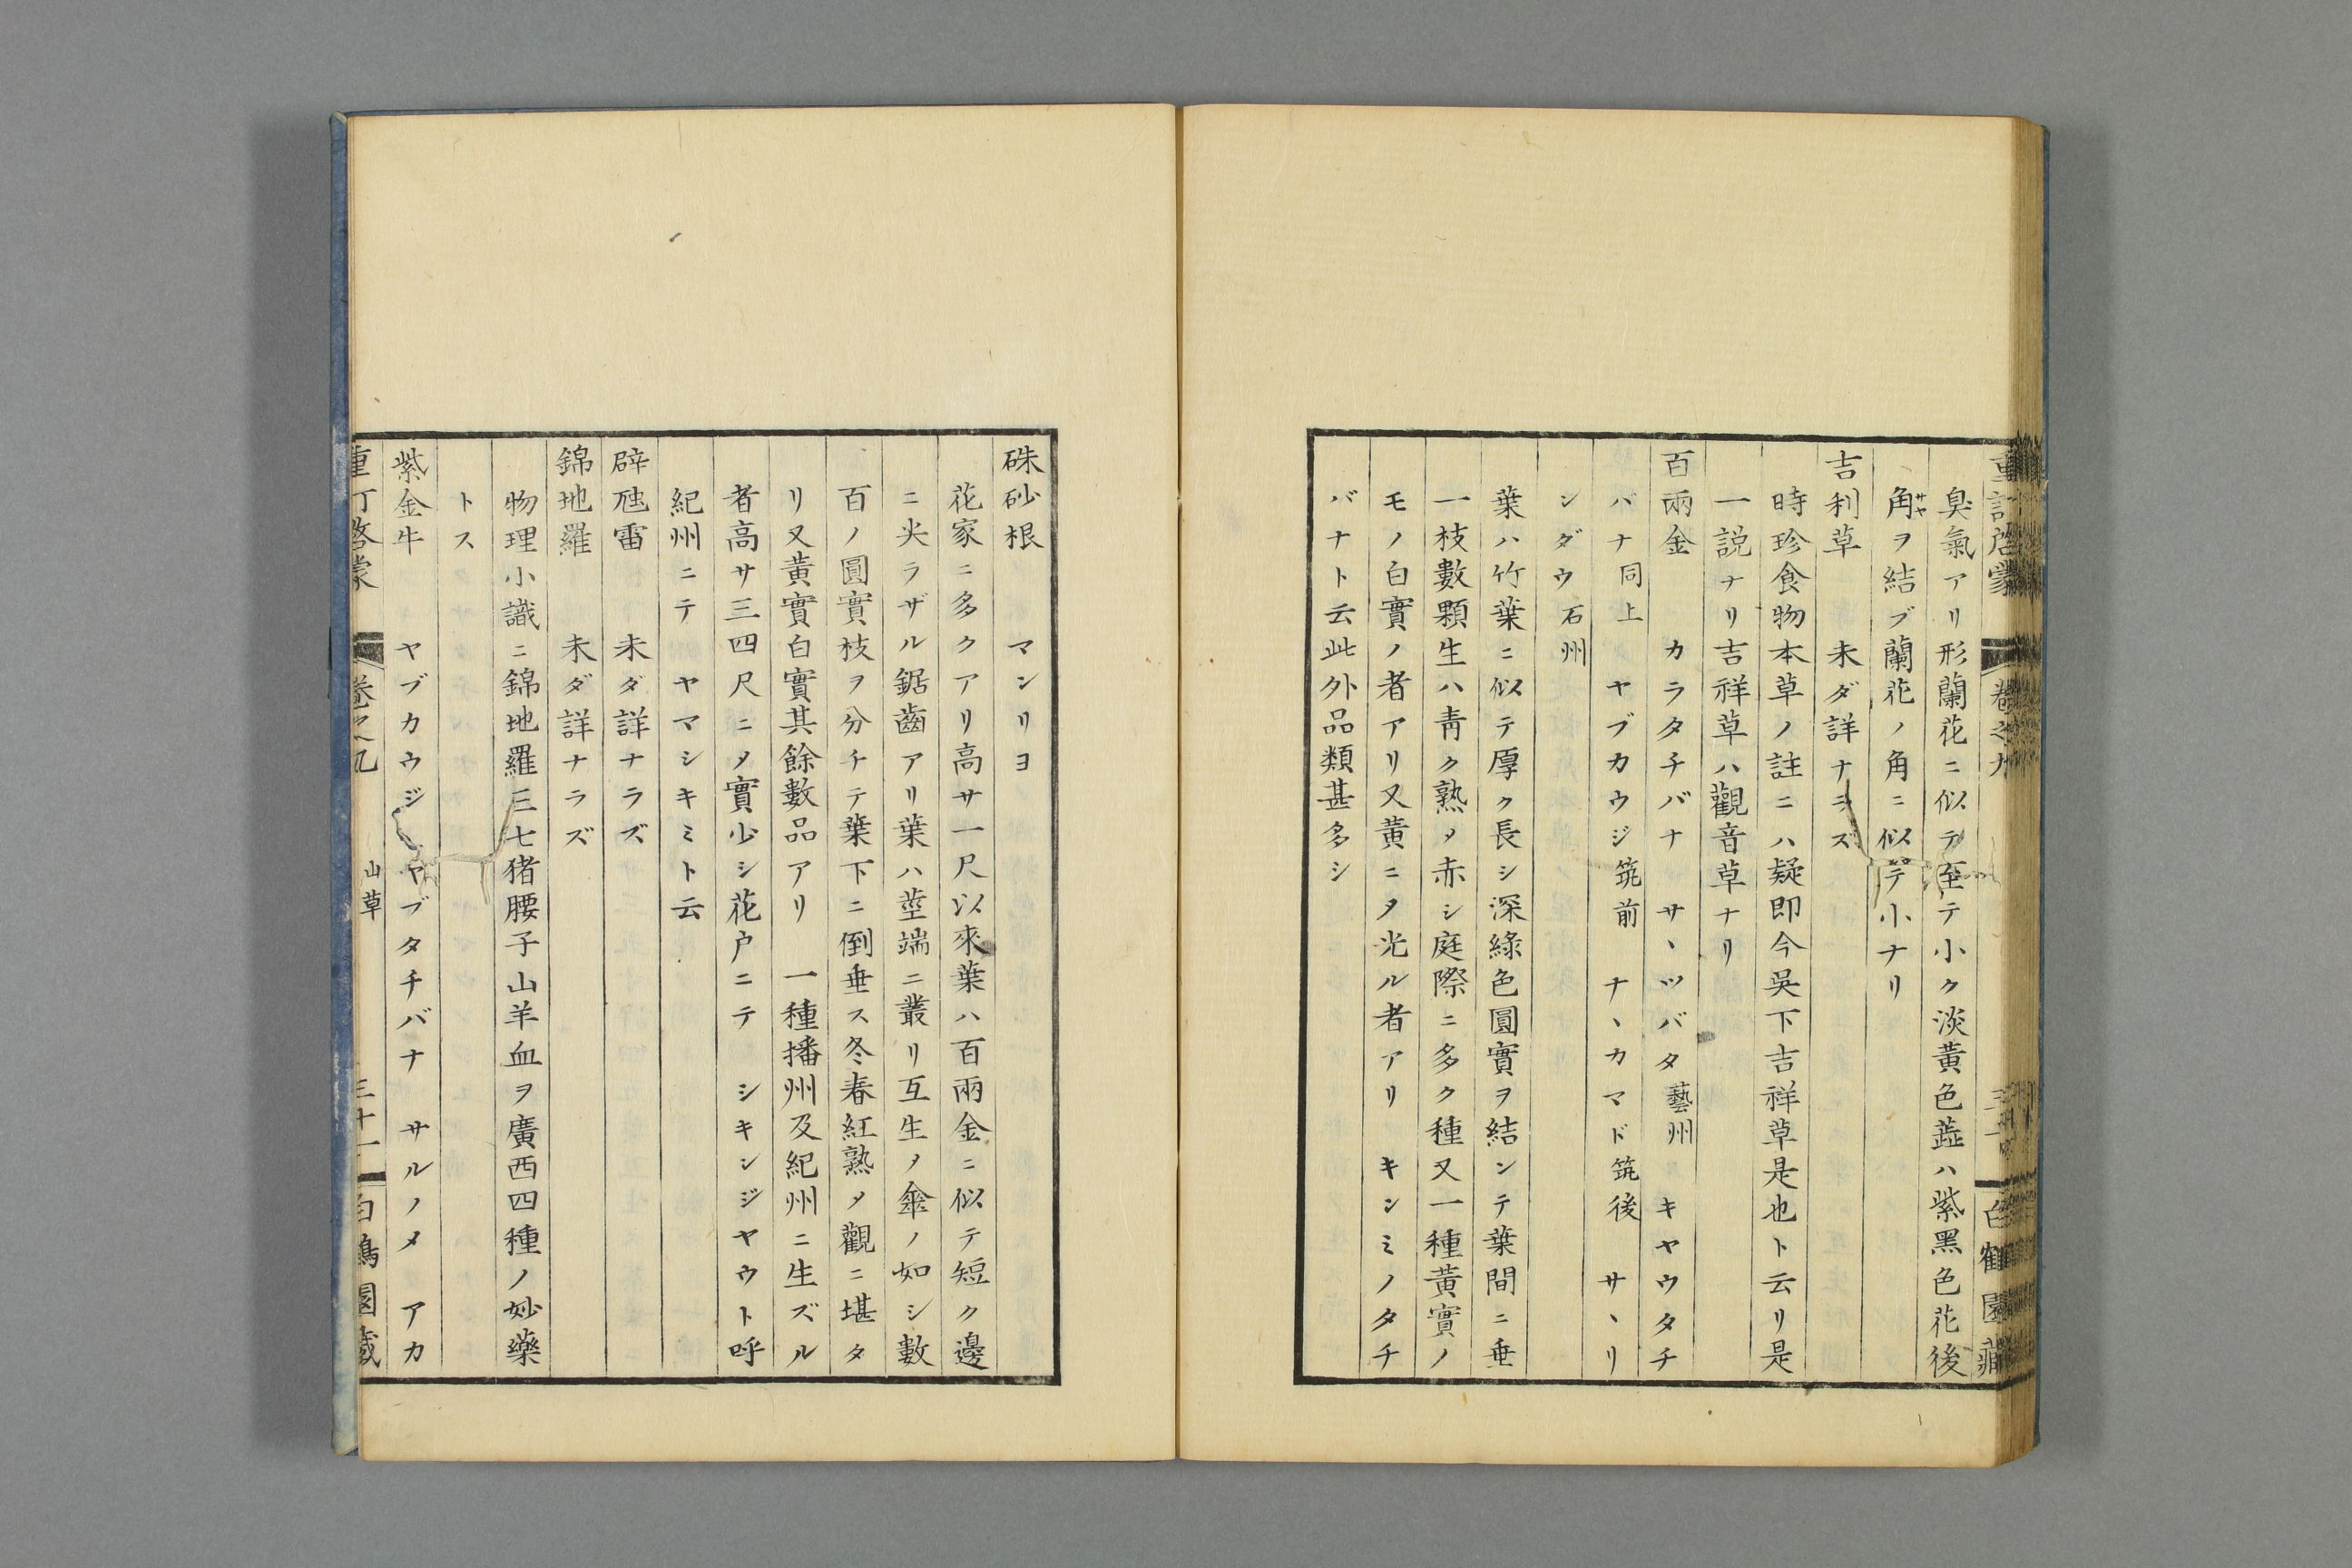 臭氣アリ形蘭花ニ似テ至テ小ク淡黄色蕋ハ紫黑色花後
角サヤヲ結ブ蘭花ノ角ニ似テ小ナリ
吉利草 未ダ詳ナラズ
時珍食物本草ノ註ニハ疑即今吳下吉祥草是也ト云リ是
一説ナリ吉祥草ハ觀音草ナリ
百兩金 カラタチバナ サヽツバタ藝州 キヤウタチ
バナ同上 ヤブカウジ筑前 ナヽカマド筑後 サヽリ
ンダウ石州
葉ハ竹葉ニ似テ厚ク長シ深綠色圓實ヲ結ンテ葉間ニ垂
一枝數顆生ハ青ク熟メ赤シ庭際ニ多ク種又一種黄實ノ
モノ白實ノ者アリ又黄ニメ光ル者アリ キンミノタチ
バナト云此外品類甚多シ
硃砂根 マンリヨ
花家ニ多クアリ高サ一尺以來葉ハ百兩金ニ似テ短ク邊
ニ尖ラザル鋸齒アリ葉ハ莖端ニ叢リ互生ノ傘ノ如シ數
百ノ圓實枝ヲ分チテ葉下ニ倒垂ス冬春紅熟メ觀ニ堪タ
リ又黄實白實其餘數品アリ 一種播州及紀州ニ生ズル
者高サ三四尺ニメ實少シ花戸ニテ シキンジヤウト呼
紀州ニテ ヤマシキミト云
辟虺雷 未ダ詳ナラズ
錦地羅 未ダ詳ナラズ
物理小識ニ錦地羅三七猪腰子山羊血ヲ廣西四種ノ妙藥
トス
紫金牛 ヤブカウジ ヤブタチバナ サルノメ アカ
重訂啓蒙 卷之九 山草 三十一 白鶴園藏